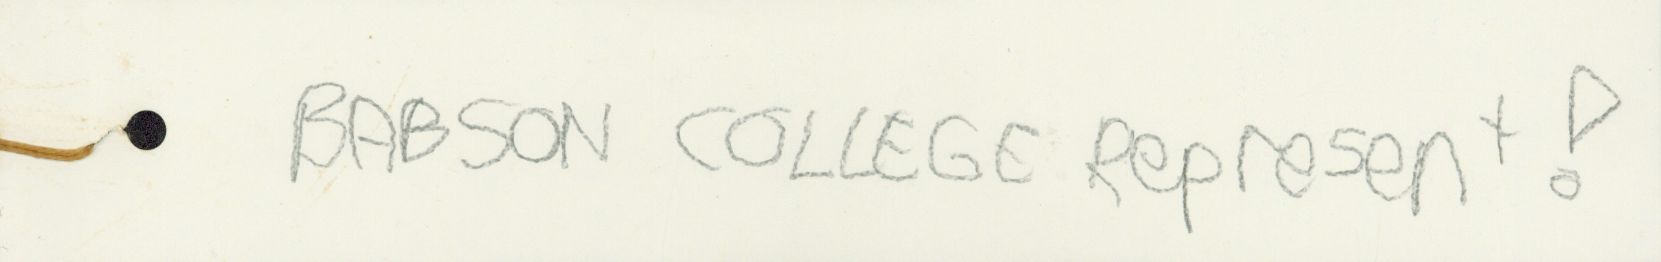 BABSON COLLEGE Represent!